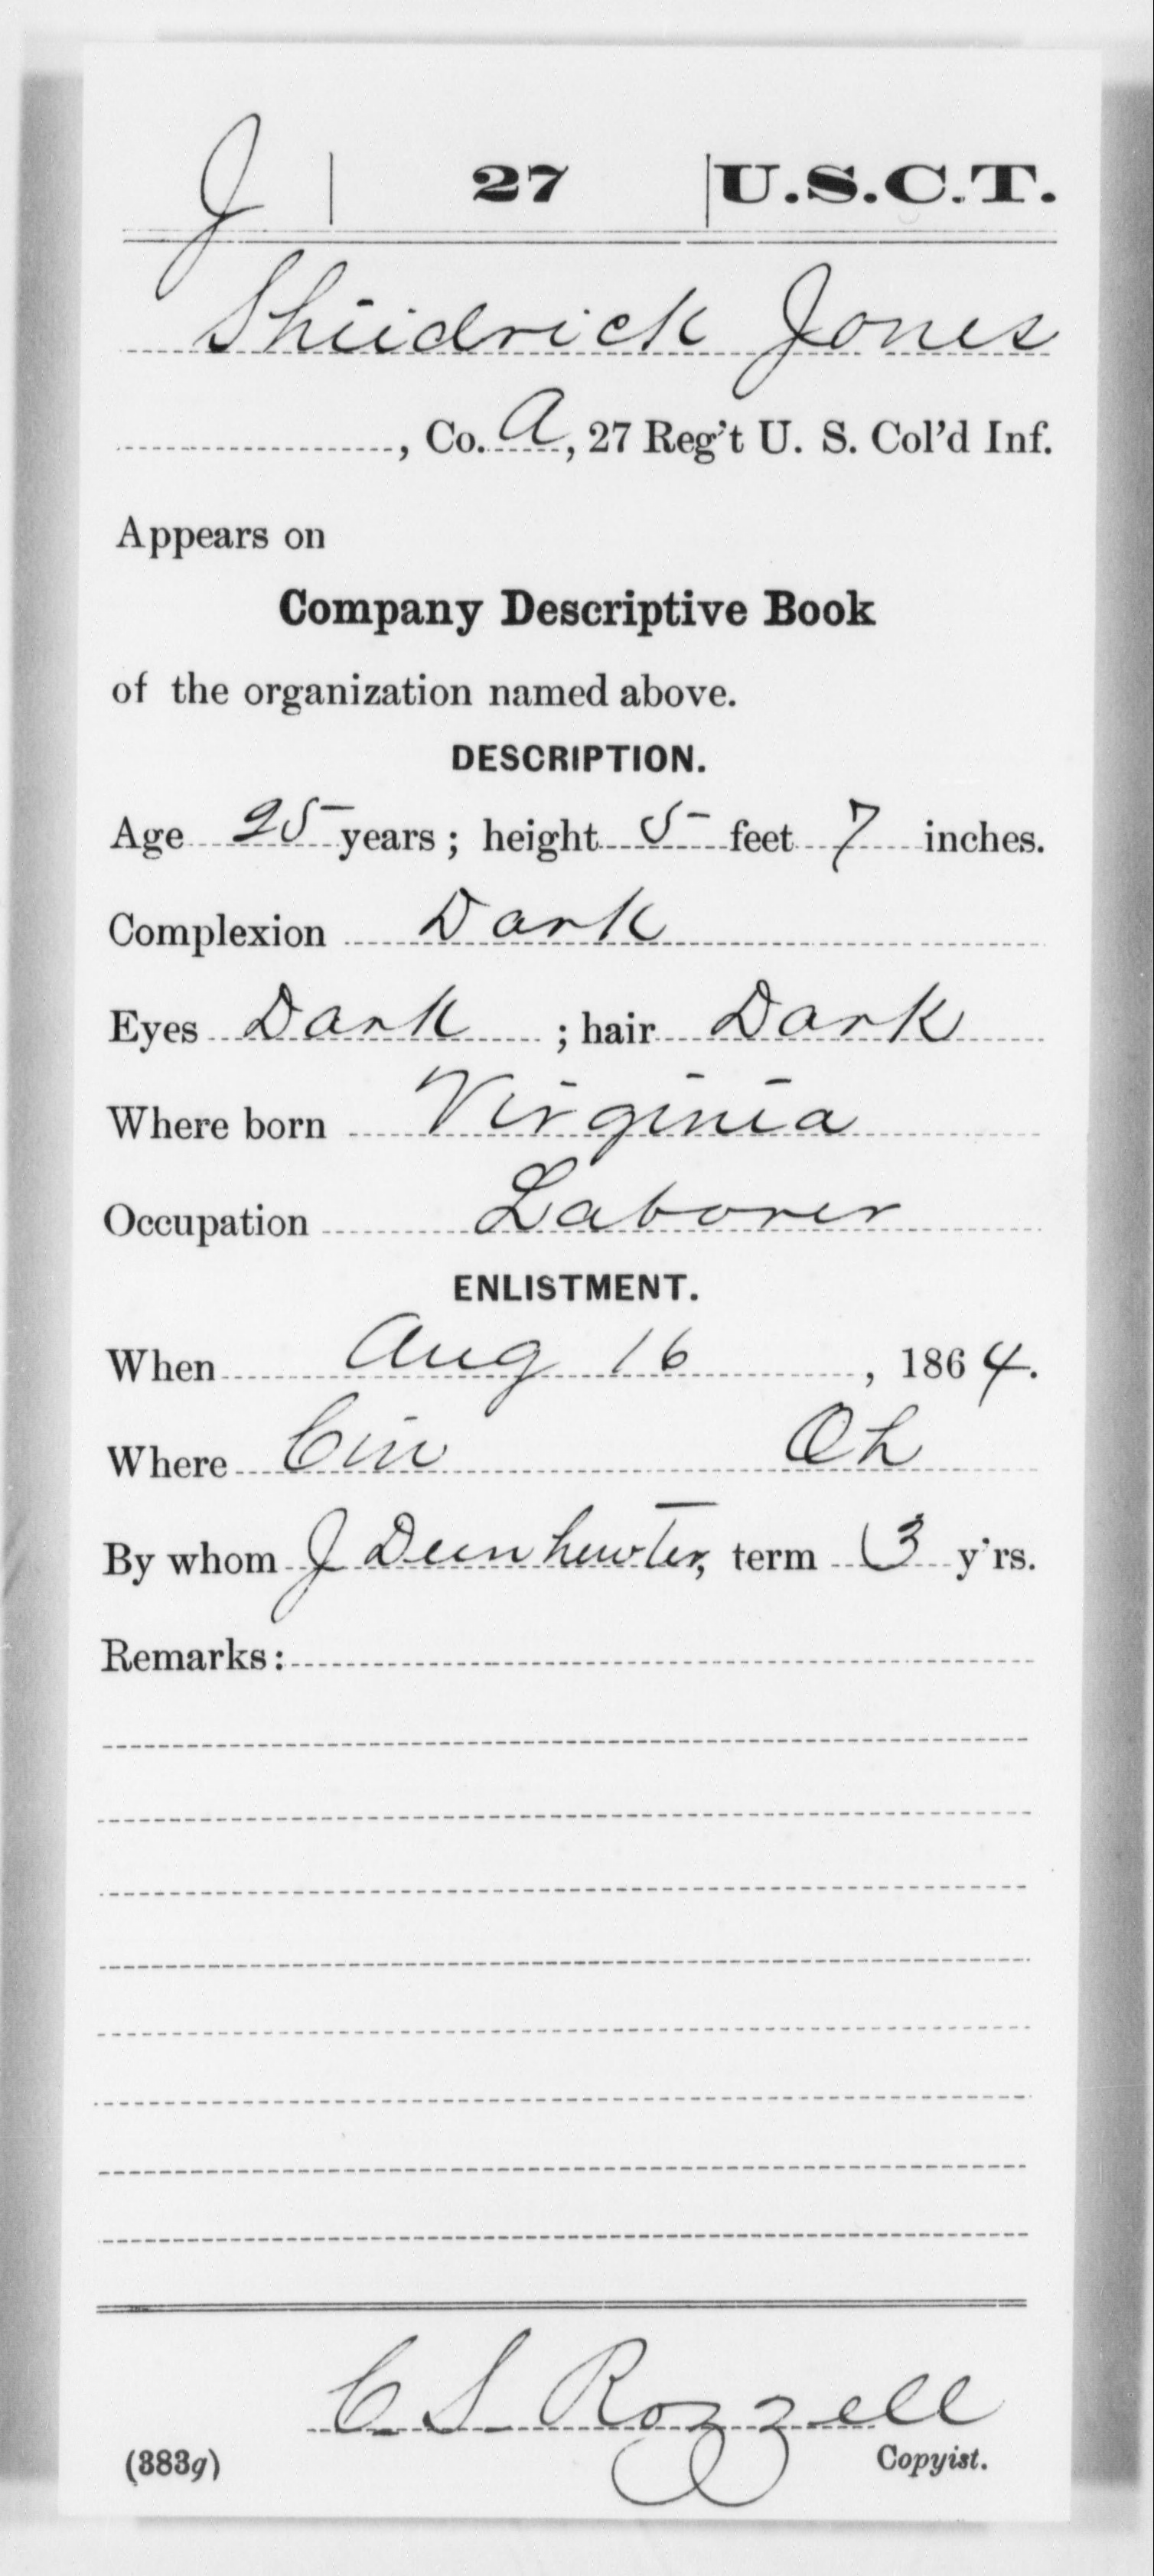 J | 27 | U.S.C.T.
Shiidrick Jones
, Co. A, 27 Reg't U. S. Col'd Inf.
Appears on
Company Descriptive Book
of the organization named above.
DESCRIPTION.
Age 25 years; height 5 feet 7 inches.
Complexion Dark
Eyes Dark ; hair Dark
Where born Virginia
Occupation Laborer
ENLISTMENT.
When Aug 16, 1864.
Where Cin Oh
By whom J, term 3 y'rs.
Remarks:
C S Rozzell
(383g) Copyist.